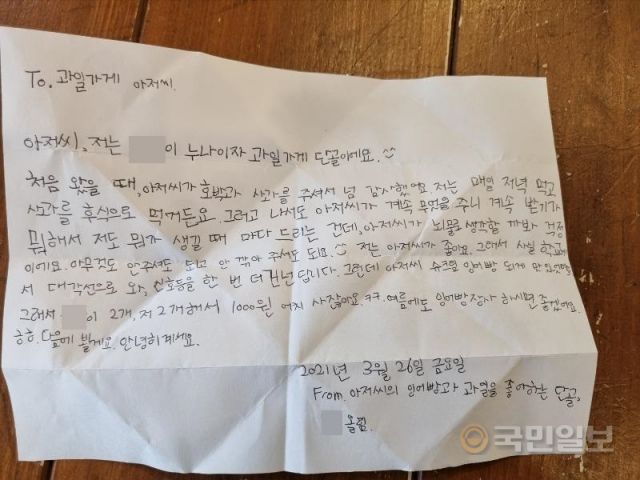 To. 과일가게 아저씨.
아저씨, 저는 이 누나이자 과일가게 단골이에요.
처음 왔을 때, 아저씨가 호박과 사과를 주셔서 넘 감사했어요 저는 매일 저녁 먹고
사과를 후식으로 먹거든요. 그러고 나서도 아저씨가 계속 무엇을 주니 계속 받기가
뭐해서 저도 뭐가 생길 때 마다 드리는 건데, 아저씨가 뇌물로 생각할 까봐 걱정
이에요. 아무것도 안 주셔도 되고 안 깎아 주셔도 되요. 저는 아저씨가 좋아요. 그래서 사실 학교에
서 대각선으로 와, 신호등을 한 번 더 건넌답니다. 그런데 아저씨 슈크림 잉어빵 되게 맛있어요
그래서 이 2개, 저 2개해서 1000원 어치 사잖아요. ㅋㅋ. 여름에도 잉어빵장사 하시면 좋겠어요.
ㅎㅎ. 다음에 뵐게요. 안녕히계세요.
2021년 3월 26일 금요일
From. 아저씨의 잉어빵과 과일을 좋아하는 단골,
올림.
국민일보